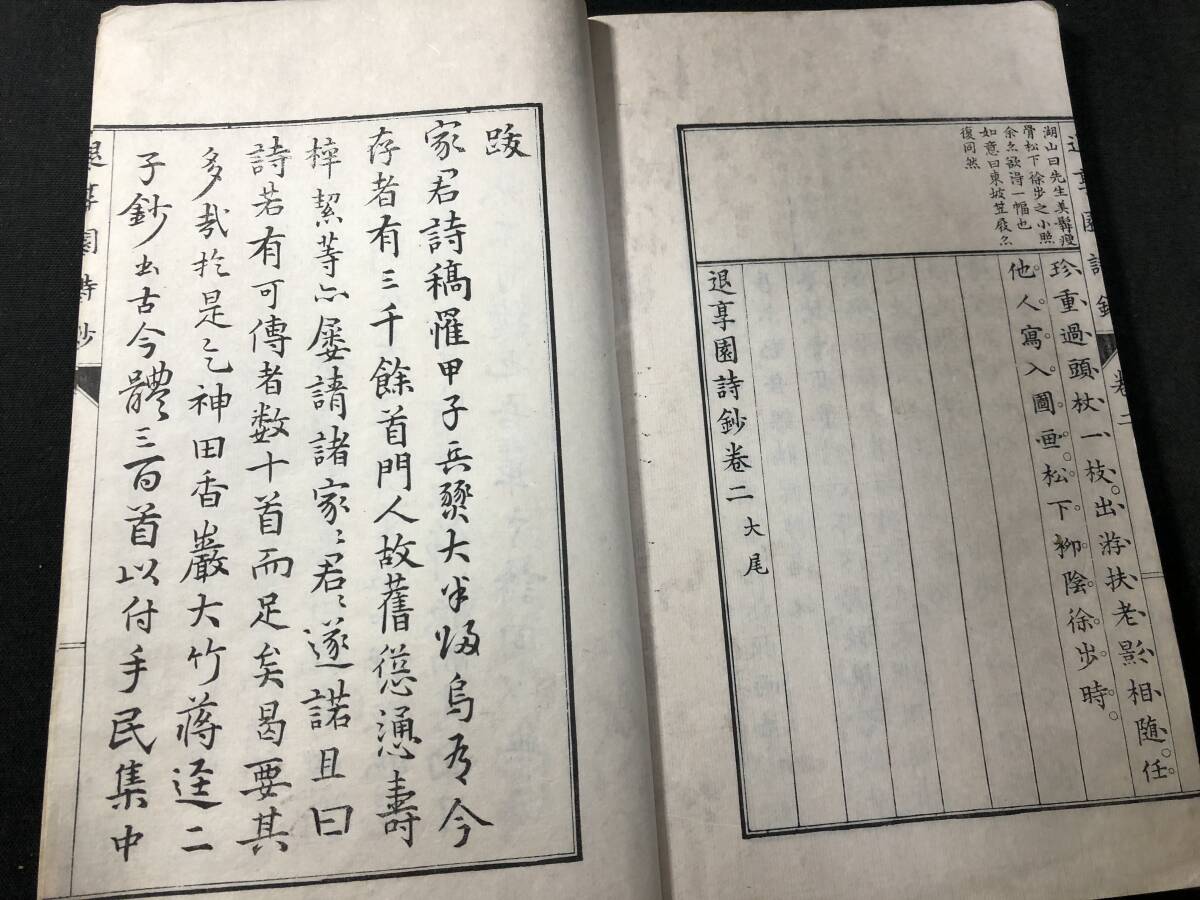 湖山曰先生美髯瘦
骨松下徐步之小照
余亦欲得一幅也
如意曰東坡笠屐亦
復同然
退享園詩鈔
卷二
珍重過頭杖一枝。出游扶老影相隨。任
他人寫入圖画。松下柳陰徐步時。
退享園詩鈔卷二 大尾
跋
家君詩稿罹甲子兵燹大半歸烏有今
存者有三千餘首門人故舊慫慂壽
梓絜等亦屢請諸家〻君〻遂諾且曰
詩若有可傳者数十首而足矣曷要其
多哉於是乞神田香巖大竹蔣逕二
子鈔出古今體三百首以付手民集中
退享園詩鈔